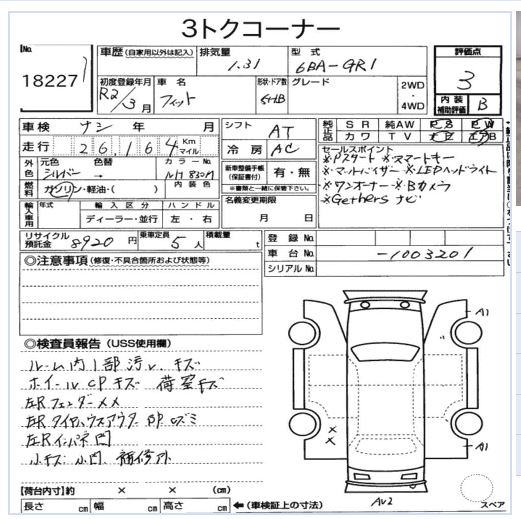 3トクコーナー
No. 18227
車歴(自家用以外は記入) 排気量 1.3l 型式 6BA-GR1
初度登録年月 R2/3月 車名 フィット 形状・ドア数 5HB グレード 2WD・4WD
評価点 3
内装補助評価 B
車検 ナシ 年 月 シフト AT
走行 26,164 Km マイル 冷房 AC
純正品 SR 純AW PS PW
カワ TV ナビ
外色 元色 シルバー 色替 → カラーNo. NH830M
燃料 ガソリン・軽油・( ) 内装色
新車整備手帳(保証書付) 有・無
※書類と一緒に保管下さい。
輸入車用 年式 輸入区分 ディーラー・並行 ハンドル 左・右
名義変更期限 月 日
セールスポイント
※Pスタート ※スマートキー
※マットバイザー ※LEDヘッドライト
※ワンオーナー ※Bカメラ
※Gathers ナビ
リサイクル預託金 8920円 乗車定員 5人 積載量 t
登録No.
車台No. -1003201
シリアルNo.
◎注意事項(修復・不具合箇所および状態等)
◎検査員報告(USS使用欄)
ルーム内1部汚レ、キズ
ホイールCPキズ 荷室キズ
左Rフェンダーメメ
左Rタイヤハウスアウター部ヨズミ
左Rインパネ凹
小キズ、小凹、補修跡
A1
A1
××
AU2
スペア
【荷台内寸】約 × × (cm)
長さ cm 幅 cm 高さ cm ←(車検証上の寸法)